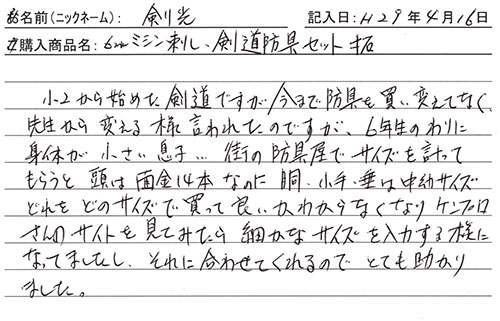 お名前(ニックネーム): 剣光 記入日:H29年4月16日
購入商品名:6mmミシン刺し、剣道防具セット 拓
小2から始めた剣道ですが今まで防具を買い変えてなく、
先生から変える様言われたのですが、6年生のわりに
身体が小さい息子… 街の防具屋でサイズを計って
もらうと頭は面金14本なのに胴、小手、垂は中幼サイズ
どれをどのサイズで買って良いかわからなくなりケンプロ
さんのサイトを見てみたら細かなサイズを入力する様に
なってましたし、それに合わせてくれるのでとても助かり
ました。